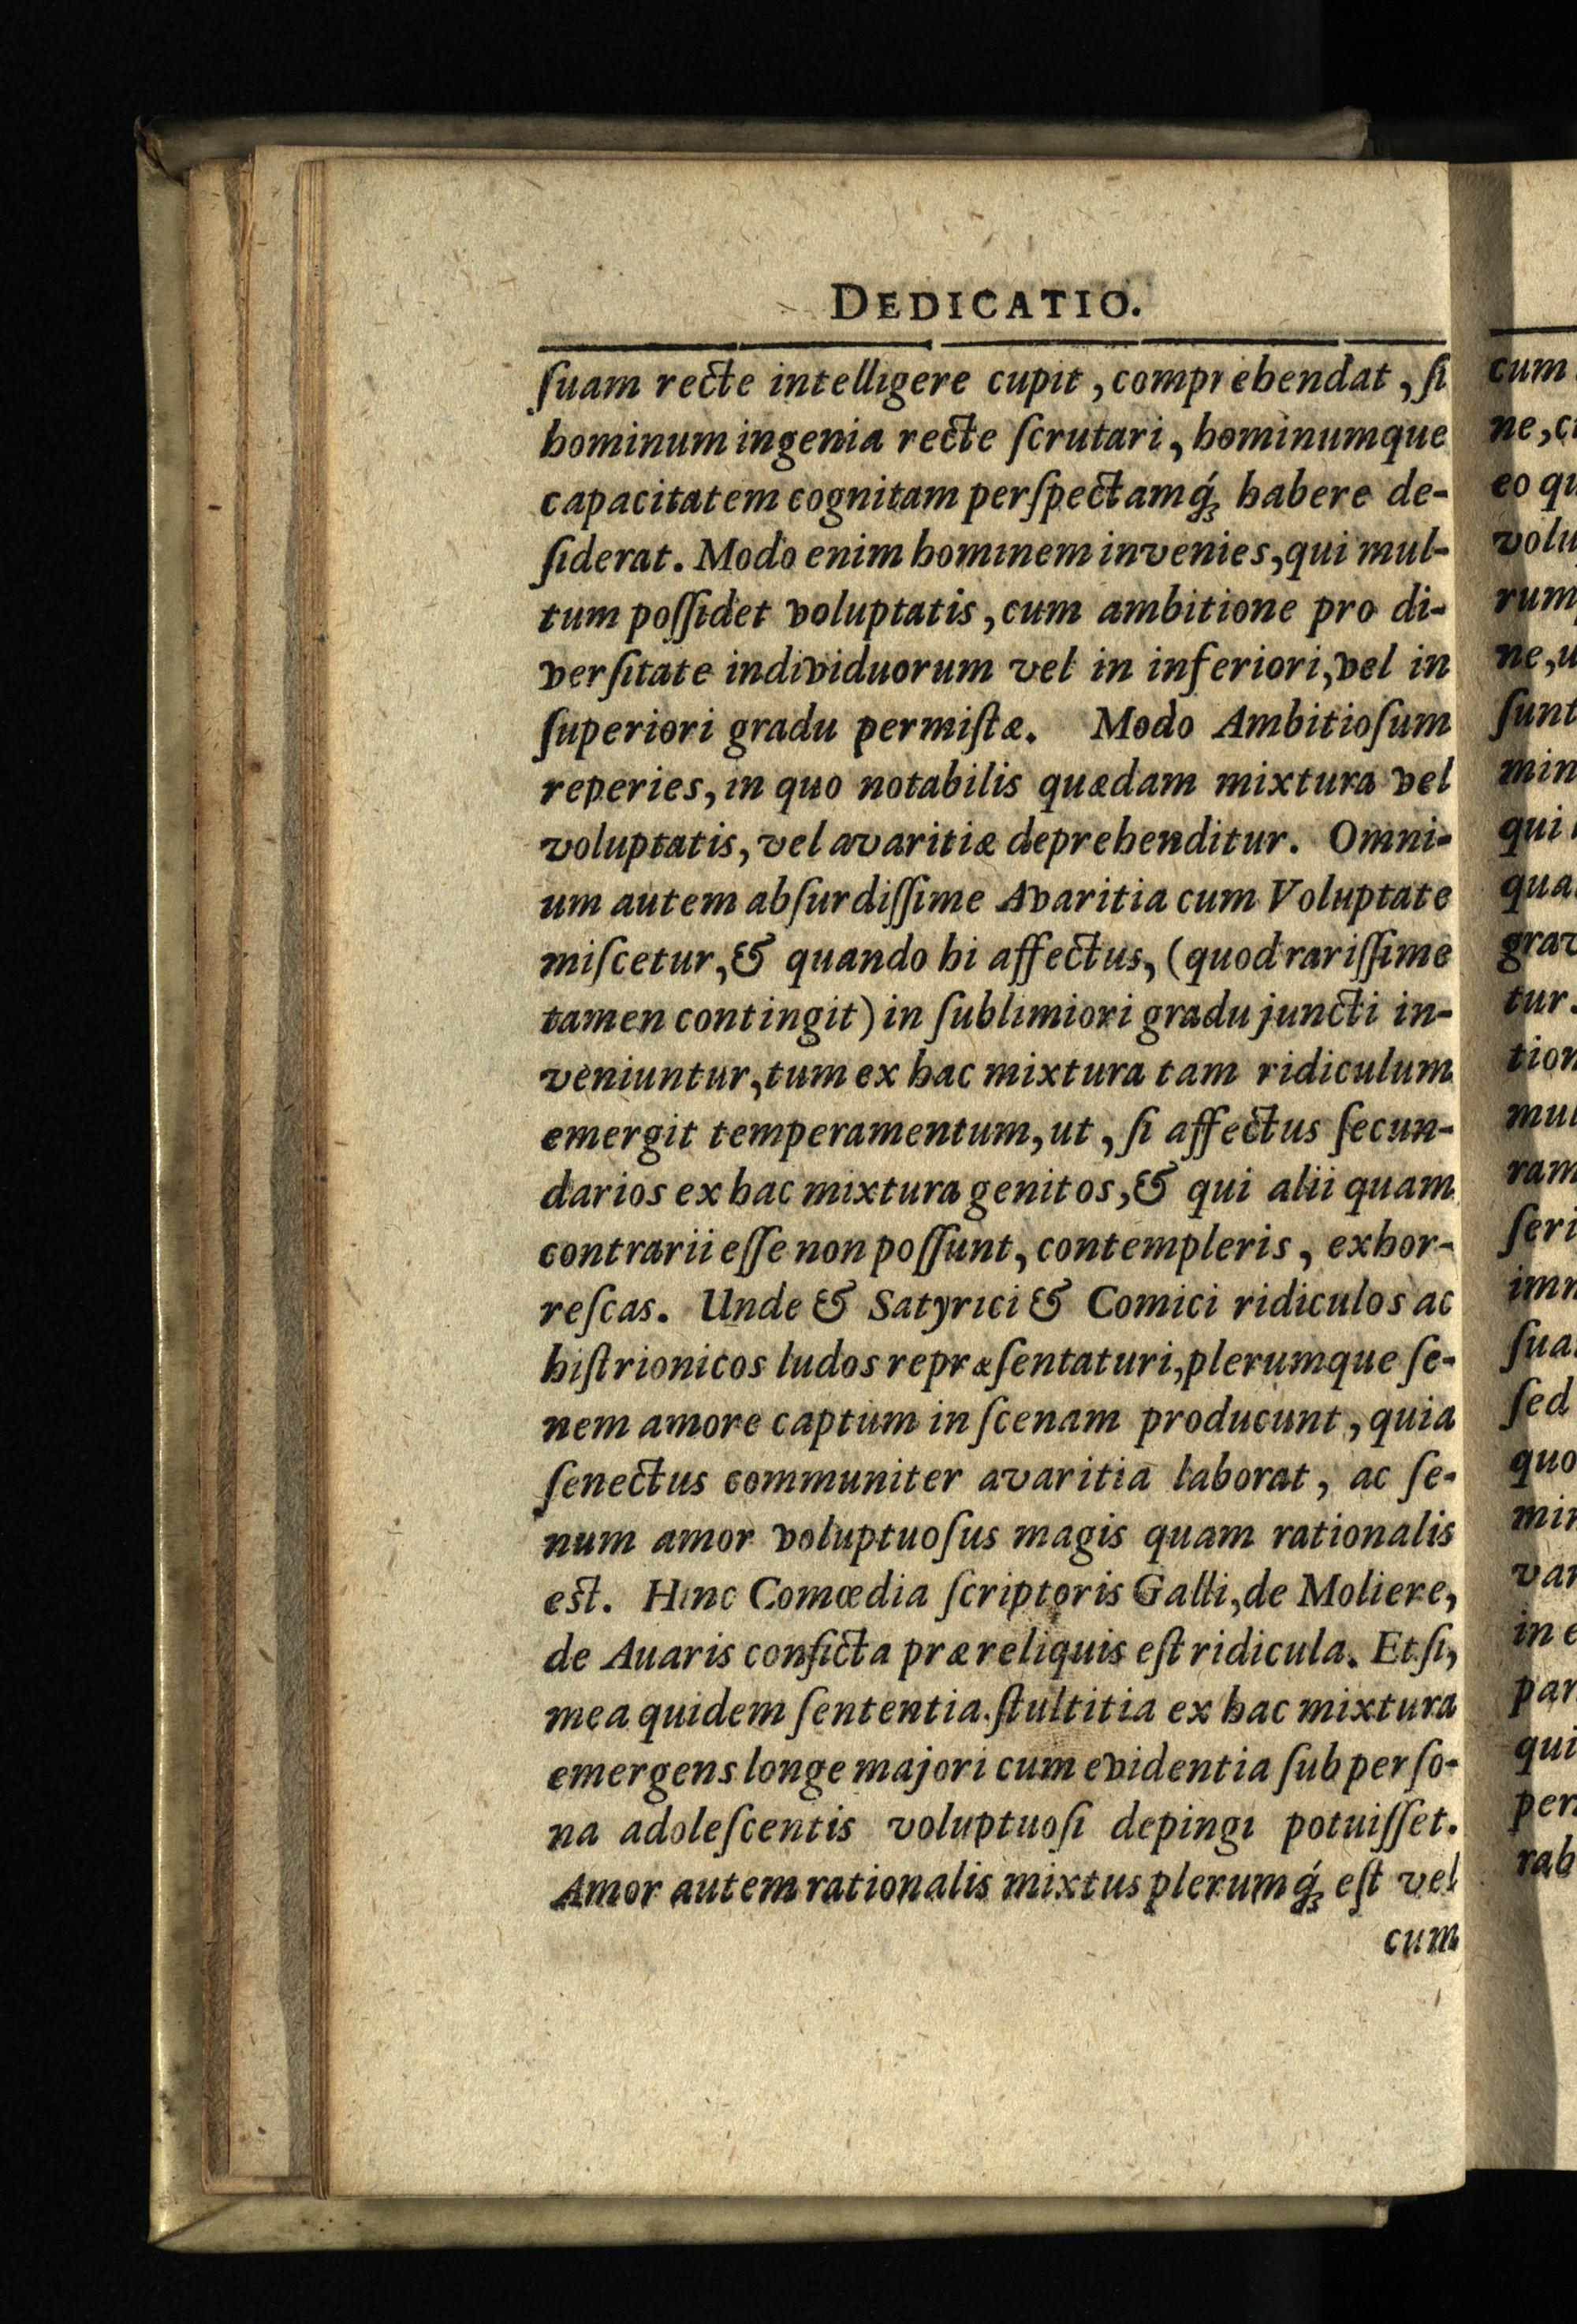 DEDICATIO.
ſuam recte intelligere cupit, comprehendat, ſi
hominum ingenia recte ſcrutari, hominumque
capacitatem cognitam perſpectamq́; habere de-
ſiderat. Modo enim hominem invenies, qui mul-
tum poſſidet voluptatis, cum ambitione pro di-
verſitate individuorum vel in inferiori, vel in
ſuperiori gradu permiſtæ. Modo Ambitioſum
reperies, in quo notabilis quædam mixtura vel
voluptatis, vel avaritiæ deprehenditur. Omni-
um autem abſurdiſſime Avaritia cum Voluptate
miſcetur, & quando hi affectus, (quod rariſſime
tamen contingit) in ſublimiori gradu juncti in-
veniuntur, tum ex hac mixtura tam ridiculum
emergit temperamentum, ut, ſi affectus ſecun-
darios ex hac mixtura genitos, & qui alii quam
contrarii eſſe non poſſunt, contempleris, exhor-
reſcas. Unde & Satyrici & Comici ridiculos ac
hiſtrionicos ludos repræſentaturi, plerumque ſe-
nem amore captum in ſcenam producunt, quia
ſenectus communiter avaritia laborat, ac ſe-
num amor voluptuoſus magis quam rationalis
eſt. Hinc Comœdia ſcriptoris Galli, de Moliere,
de Auaris conficta præ reliquis eſt ridicula. Etſi,
mea quidem ſententia. ſtultitia ex hac mixtura
emergens longe majori cum evidentia ſub perſo-
na adoleſcentis voluptuoſi depingi potuiſſet.
Amor autem rationalis mixtus plerumq́; eſt vel
cum
cum
ne, c
eo qu
volu
rum
ne, u
ſunt
min
qui
qua
grav
tur.
tion
mul
ram
ſeri
imn
ſua
ſed
quo
min
var
in e
par
qui
per
rab